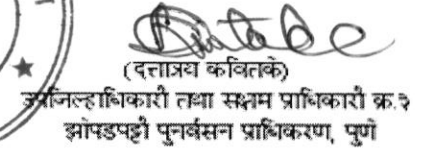 (दत्तात्रय कवितके)
उपजिल्हाधिकारी तथा सक्षम प्राधिकारी क्र.२
झोपडपट्टी पुनर्वसन प्राधिकरण, पुणे